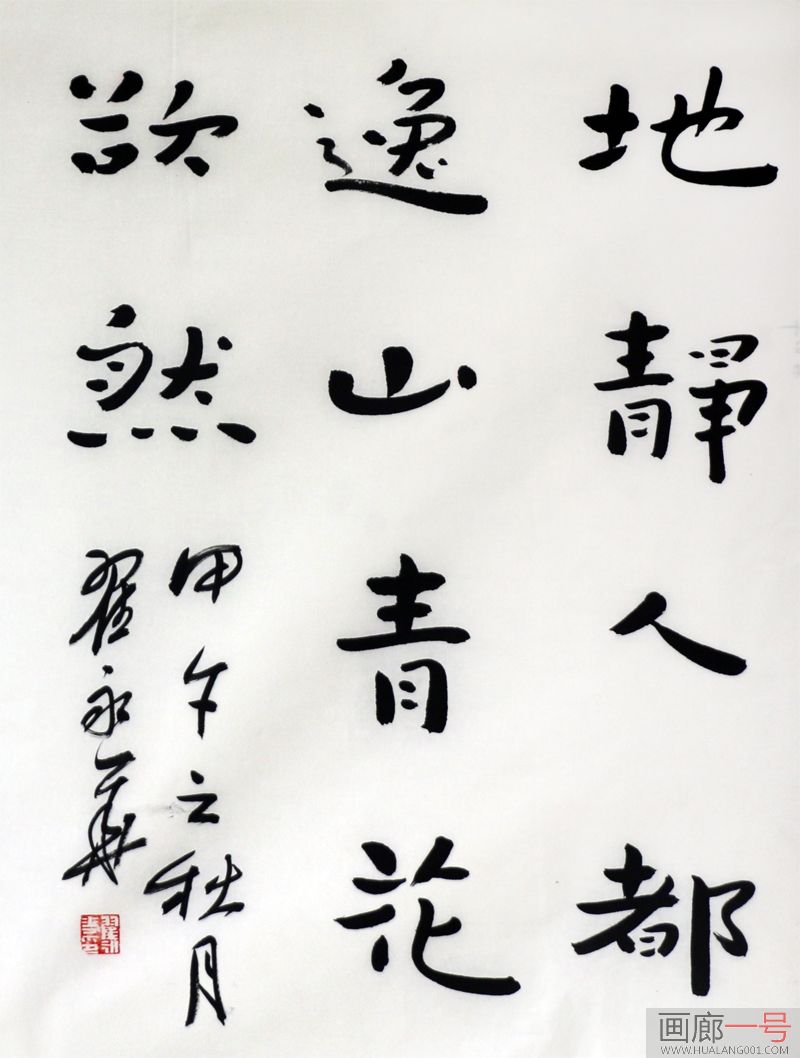 地靜人都
逸山青花
欲然
甲午之秋月
翟永華
画廊一号
WWW.HUALANG001.COM